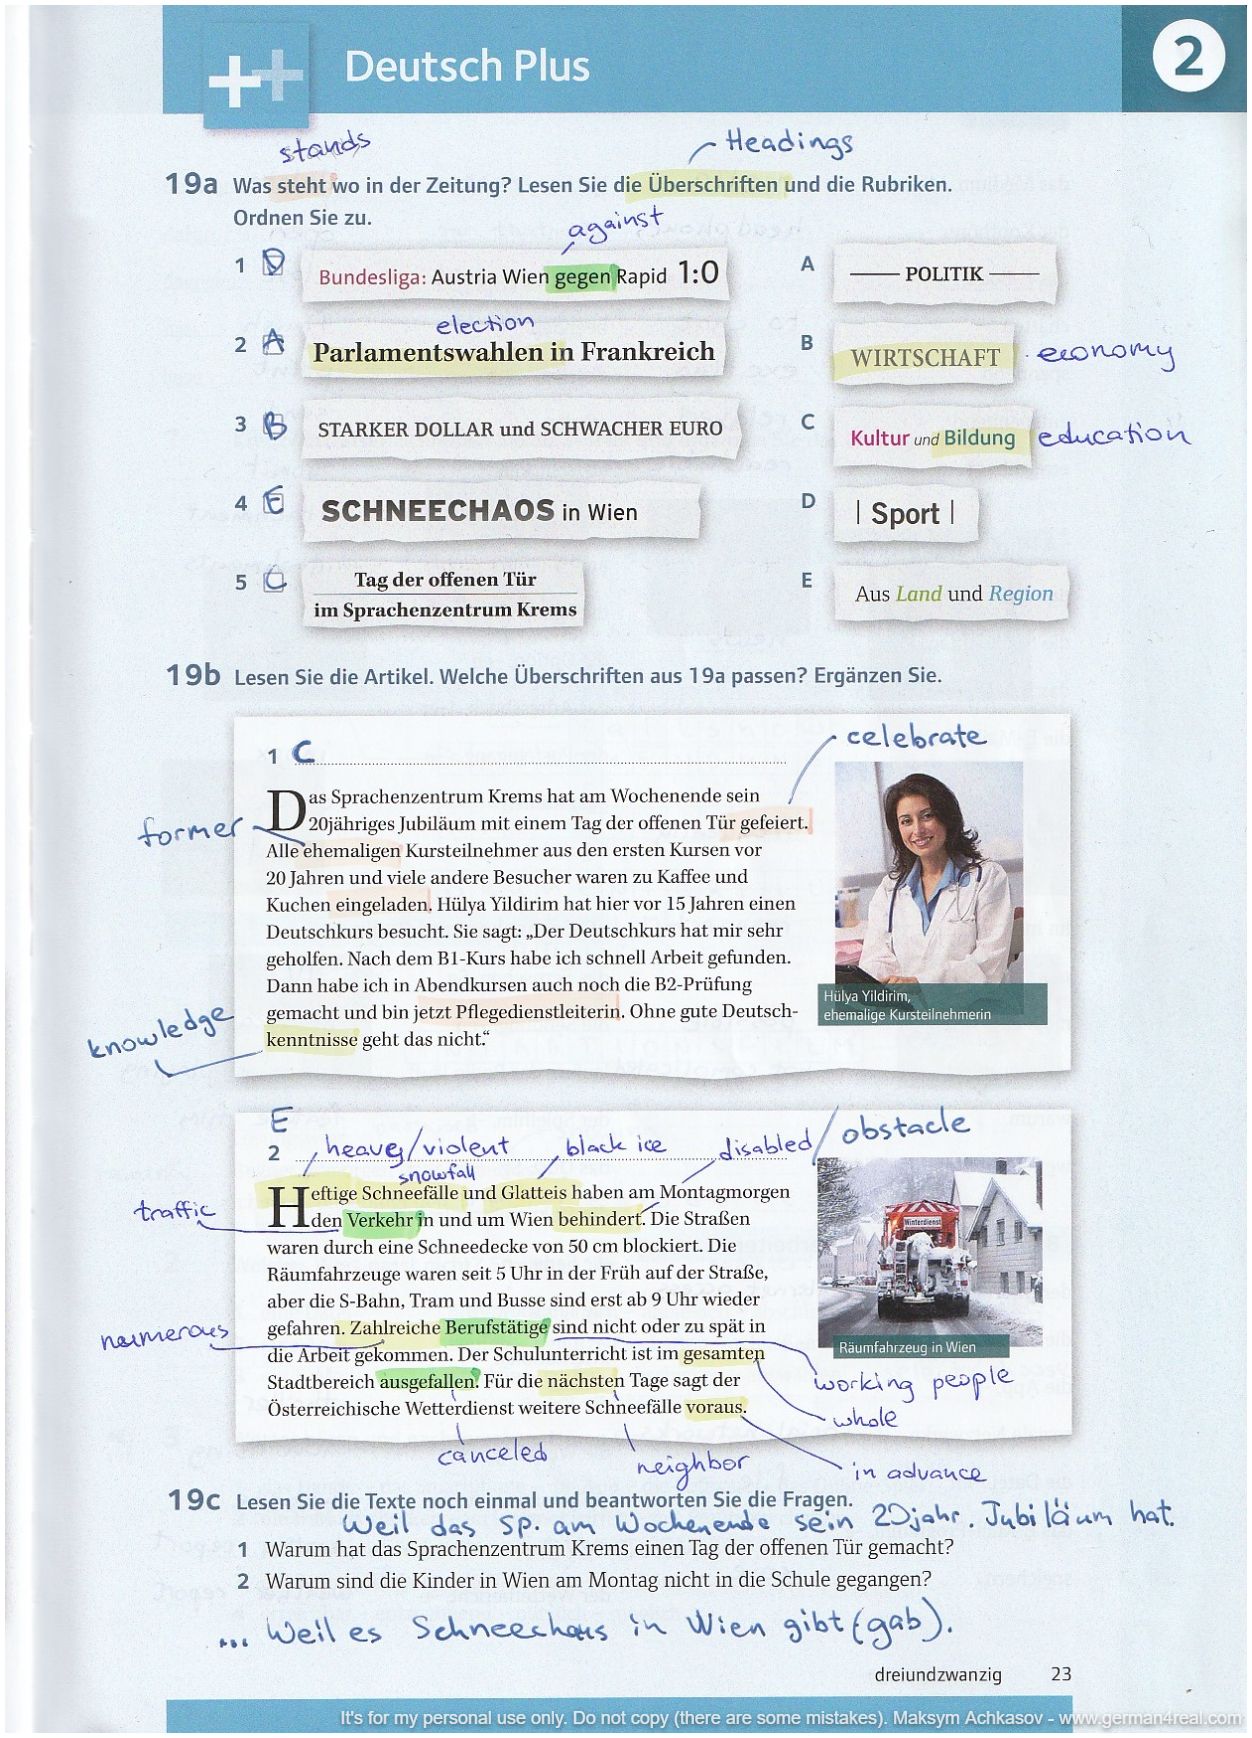 Deutsch Plus
2
stands
Headings
19a Was steht wo in der Zeitung? Lesen Sie die Überschriften und die Rubriken.
Ordnen Sie zu.
against
1 D Bundesliga: Austria Wien gegen Rapid 1:0
A POLITIK
election
2 A Parlamentswahlen in Frankreich
B WIRTSCHAFT economy
3 B STARKER DOLLAR und SCHWACHER EURO
C Kultur und Bildung education
4 E SCHNEECHAOS in Wien
D | Sport |
5 C Tag der offenen Tür
im Sprachenzentrum Krems
E Aus Land und Region
19b Lesen Sie die Artikel. Welche Überschriften aus 19a passen? Ergänzen Sie.
celebrate
1 C
Das Sprachenzentrum Krems hat am Wochenende sein
20jähriges Jubiläum mit einem Tag der offenen Tür gefeiert.
former
Alle ehemaligen Kursteilnehmer aus den ersten Kursen vor
20 Jahren und viele andere Besucher waren zu Kaffee und
Kuchen eingeladen. Hülya Yildirim hat hier vor 15 Jahren einen
Deutschkurs besucht. Sie sagt: „Der Deutschkurs hat mir sehr
geholfen. Nach dem B1-Kurs habe ich schnell Arbeit gefunden.
Dann habe ich in Abendkursen auch noch die B2-Prüfung
gemacht und bin jetzt Pflegedienstleiterin. Ohne gute Deutsch-
kenntnisse geht das nicht.“
knowledge
Hülya Yildirim,
ehemalige Kursteilnehmerin
E
obstacle
2 heavey/violent black ice disabled
snowfall
Heftige Schneefälle und Glatteis haben am Montagmorgen
traffic
den Verkehr in und um Wien behindert. Die Straßen
waren durch eine Schneedecke von 50 cm blockiert. Die
Räumfahrzeuge waren seit 5 Uhr in der Früh auf der Straße,
aber die S-Bahn, Tram und Busse sind erst ab 9 Uhr wieder
gefahren. Zahlreiche Berufstätige sind nicht oder zu spät in
numerous
die Arbeit gekommen. Der Schulunterricht ist im gesamten
Stadtbereich ausgefallen. Für die nächsten Tage sagt der
Österreichische Wetterdienst weitere Schneefälle voraus.
Winterdienst
Räumfahrzeug in Wien
working people
whole
canceled
neighbor
in advance
19c Lesen Sie die Texte noch einmal und beantworten Sie die Fragen.
Weil das Sp. am Wochenende sein 20jahr. Jubiläum hat.
1 Warum hat das Sprachenzentrum Krems einen Tag der offenen Tür gemacht?
2 Warum sind die Kinder in Wien am Montag nicht in die Schule gegangen?
... Weil es Schneechaos in Wien gibt (gab).
dreiundzwanzig 23
It's for my personal use only. Do not copy (there are some mistakes). Maksym Achkasov - www.german4real.com